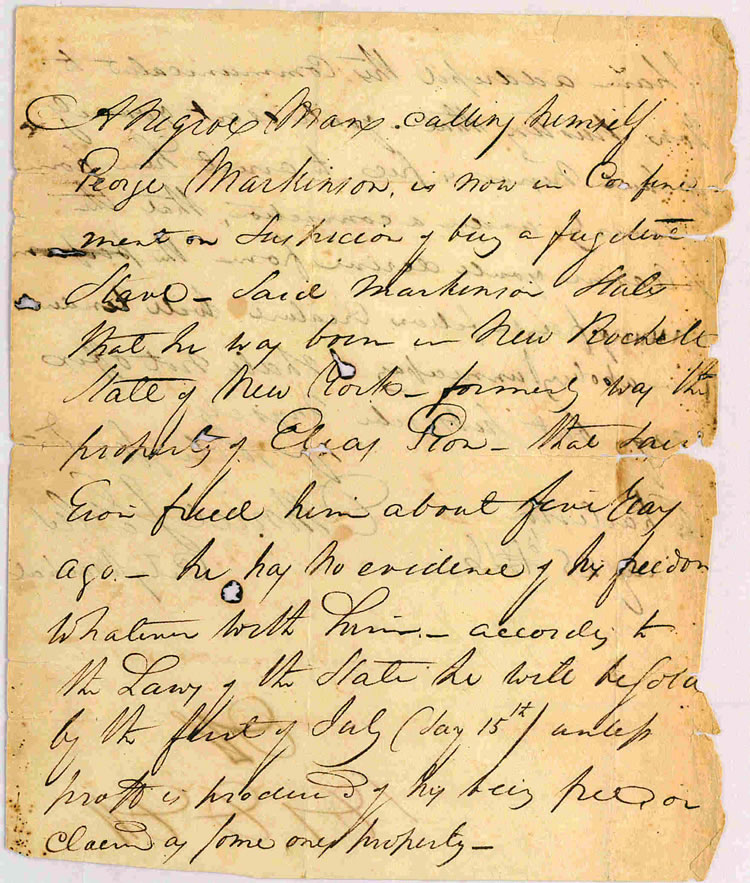 A Negroe Man calling himself
George Markinson, is now in Confine
ment on Suspicion of being a fugitive
Slave – Said Markinson States
that he was born in New Rochelle
State of New York – formerly was the
property of Elias – that said
freed him about five Years
ago. – he has no evidence of his freedom
Whatever with him. – according to
the Laws of the State he will be Sold
by the first of July (say 15th) unless
proff is produced of his being free or
claimed as some ones property –